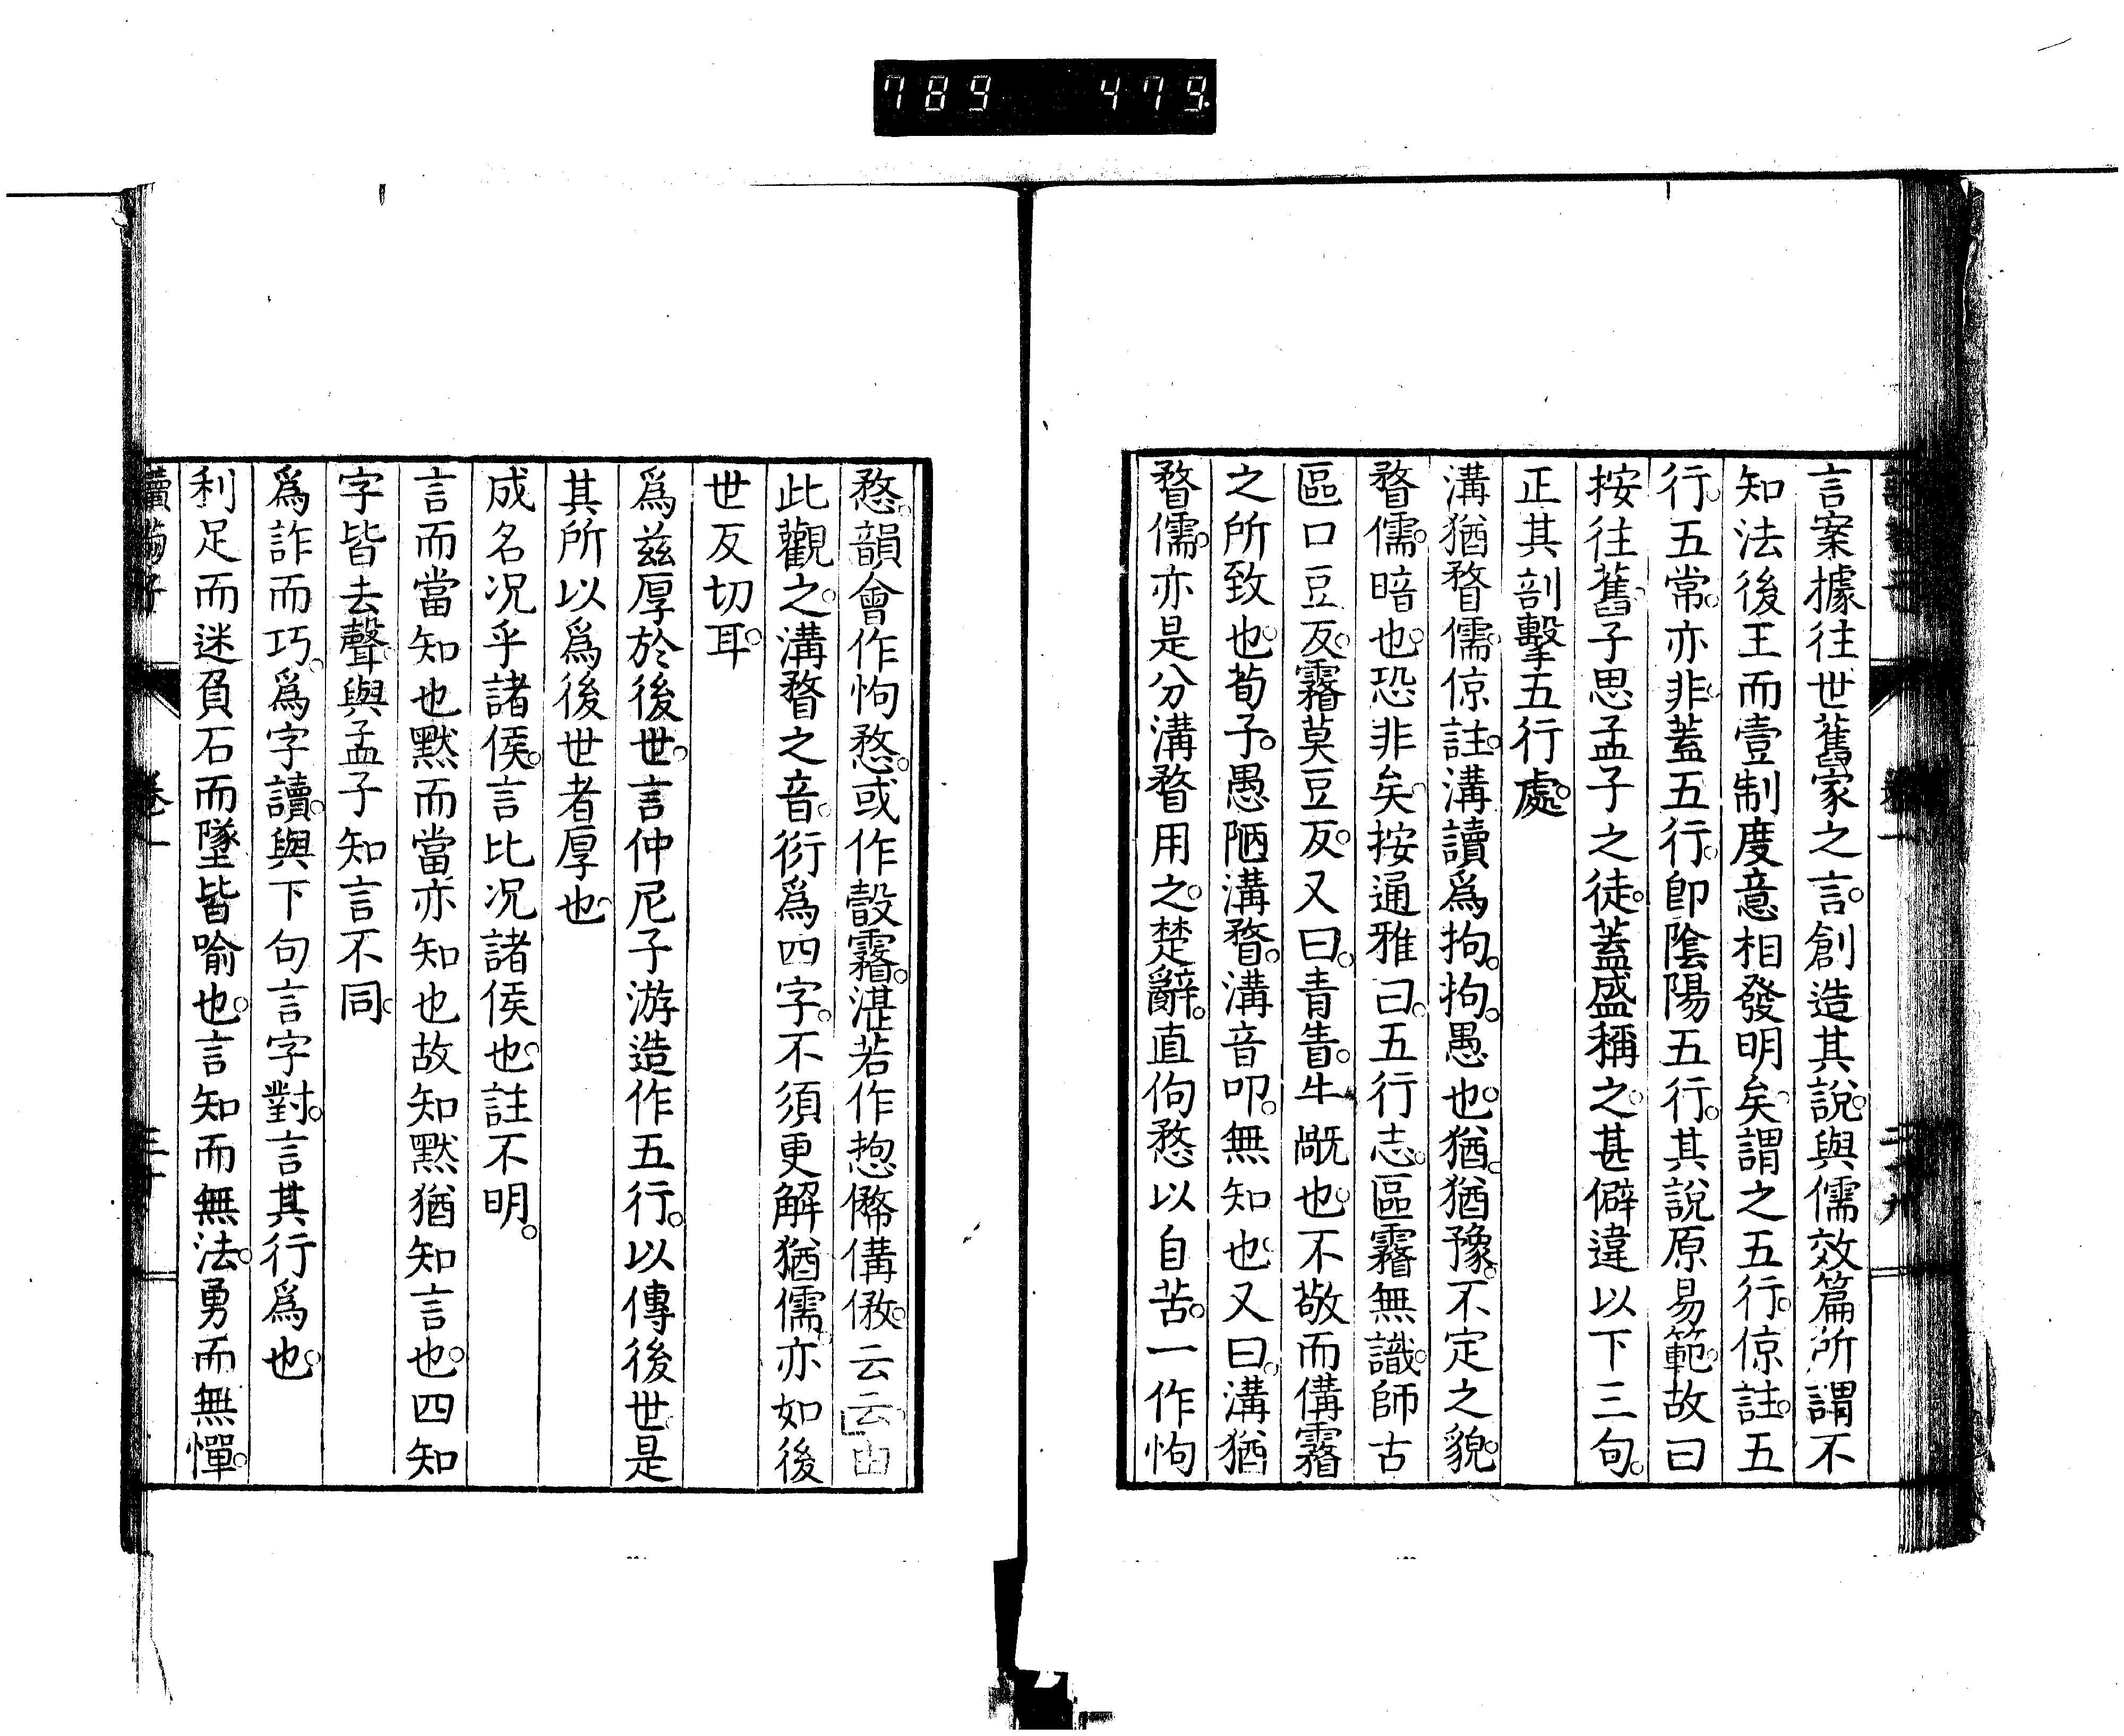 789 479
言案據往世舊家之言。創造其說。與儒效篇所謂不
知法後王而壹制度意相發明矣。謂之五行。倞註。五
行。五常。亦非。蓋五行。卽陰陽五行。其說原易範。故曰
按往舊。子思孟子之徒。蓋盛稱之。甚僻違以下三句。
正其剖擊五行處。
溝猶瞀儒。倞註。溝讀爲拘。拘。愚也。猶。猶豫。不定之貌。
瞀儒。暗也。恐非矣。按通雅曰。五行志。區霿無識。師古
區口豆反。霿莫豆反。又曰。青眚。牛旤也。不敬而傋霿
之所致也。荀子。愚陋溝瞀。溝音叩。無知也。又曰。溝猶
瞀儒。亦是分溝瞀用之。楚辭。直佝愗以自苦。一作怐
愗。韻會作怐愗。或作瞉霿。湛若作㨾㒆傋㑄。云云由
此觀之。溝瞀之音。衍爲四字。不須更解猶儒。亦如後
世反切耳。
爲茲厚於後世。言仲尼子游造作五行。以傳後世。是
其所以爲後世者厚也。
成名况乎諸侯。言比况諸侯也。註不明。
言而當知也默而當亦知也故知默猶知言也。四知
字皆去聲。與孟子知言不同。
爲詐而巧。爲字讀。與下句言字對。言其行爲也。
利足而迷負石而墜皆喻也。言知而無法。勇而無憚。
讀荀子 卷一